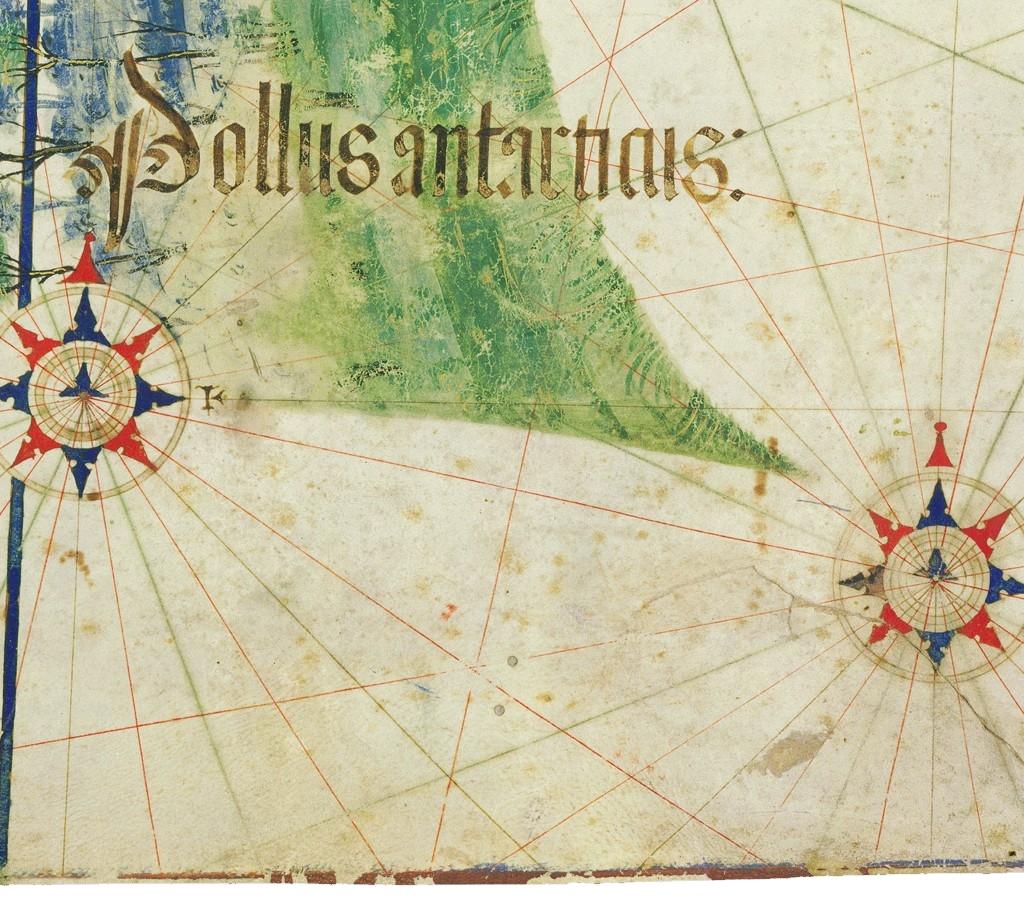 Pollus antarticus: